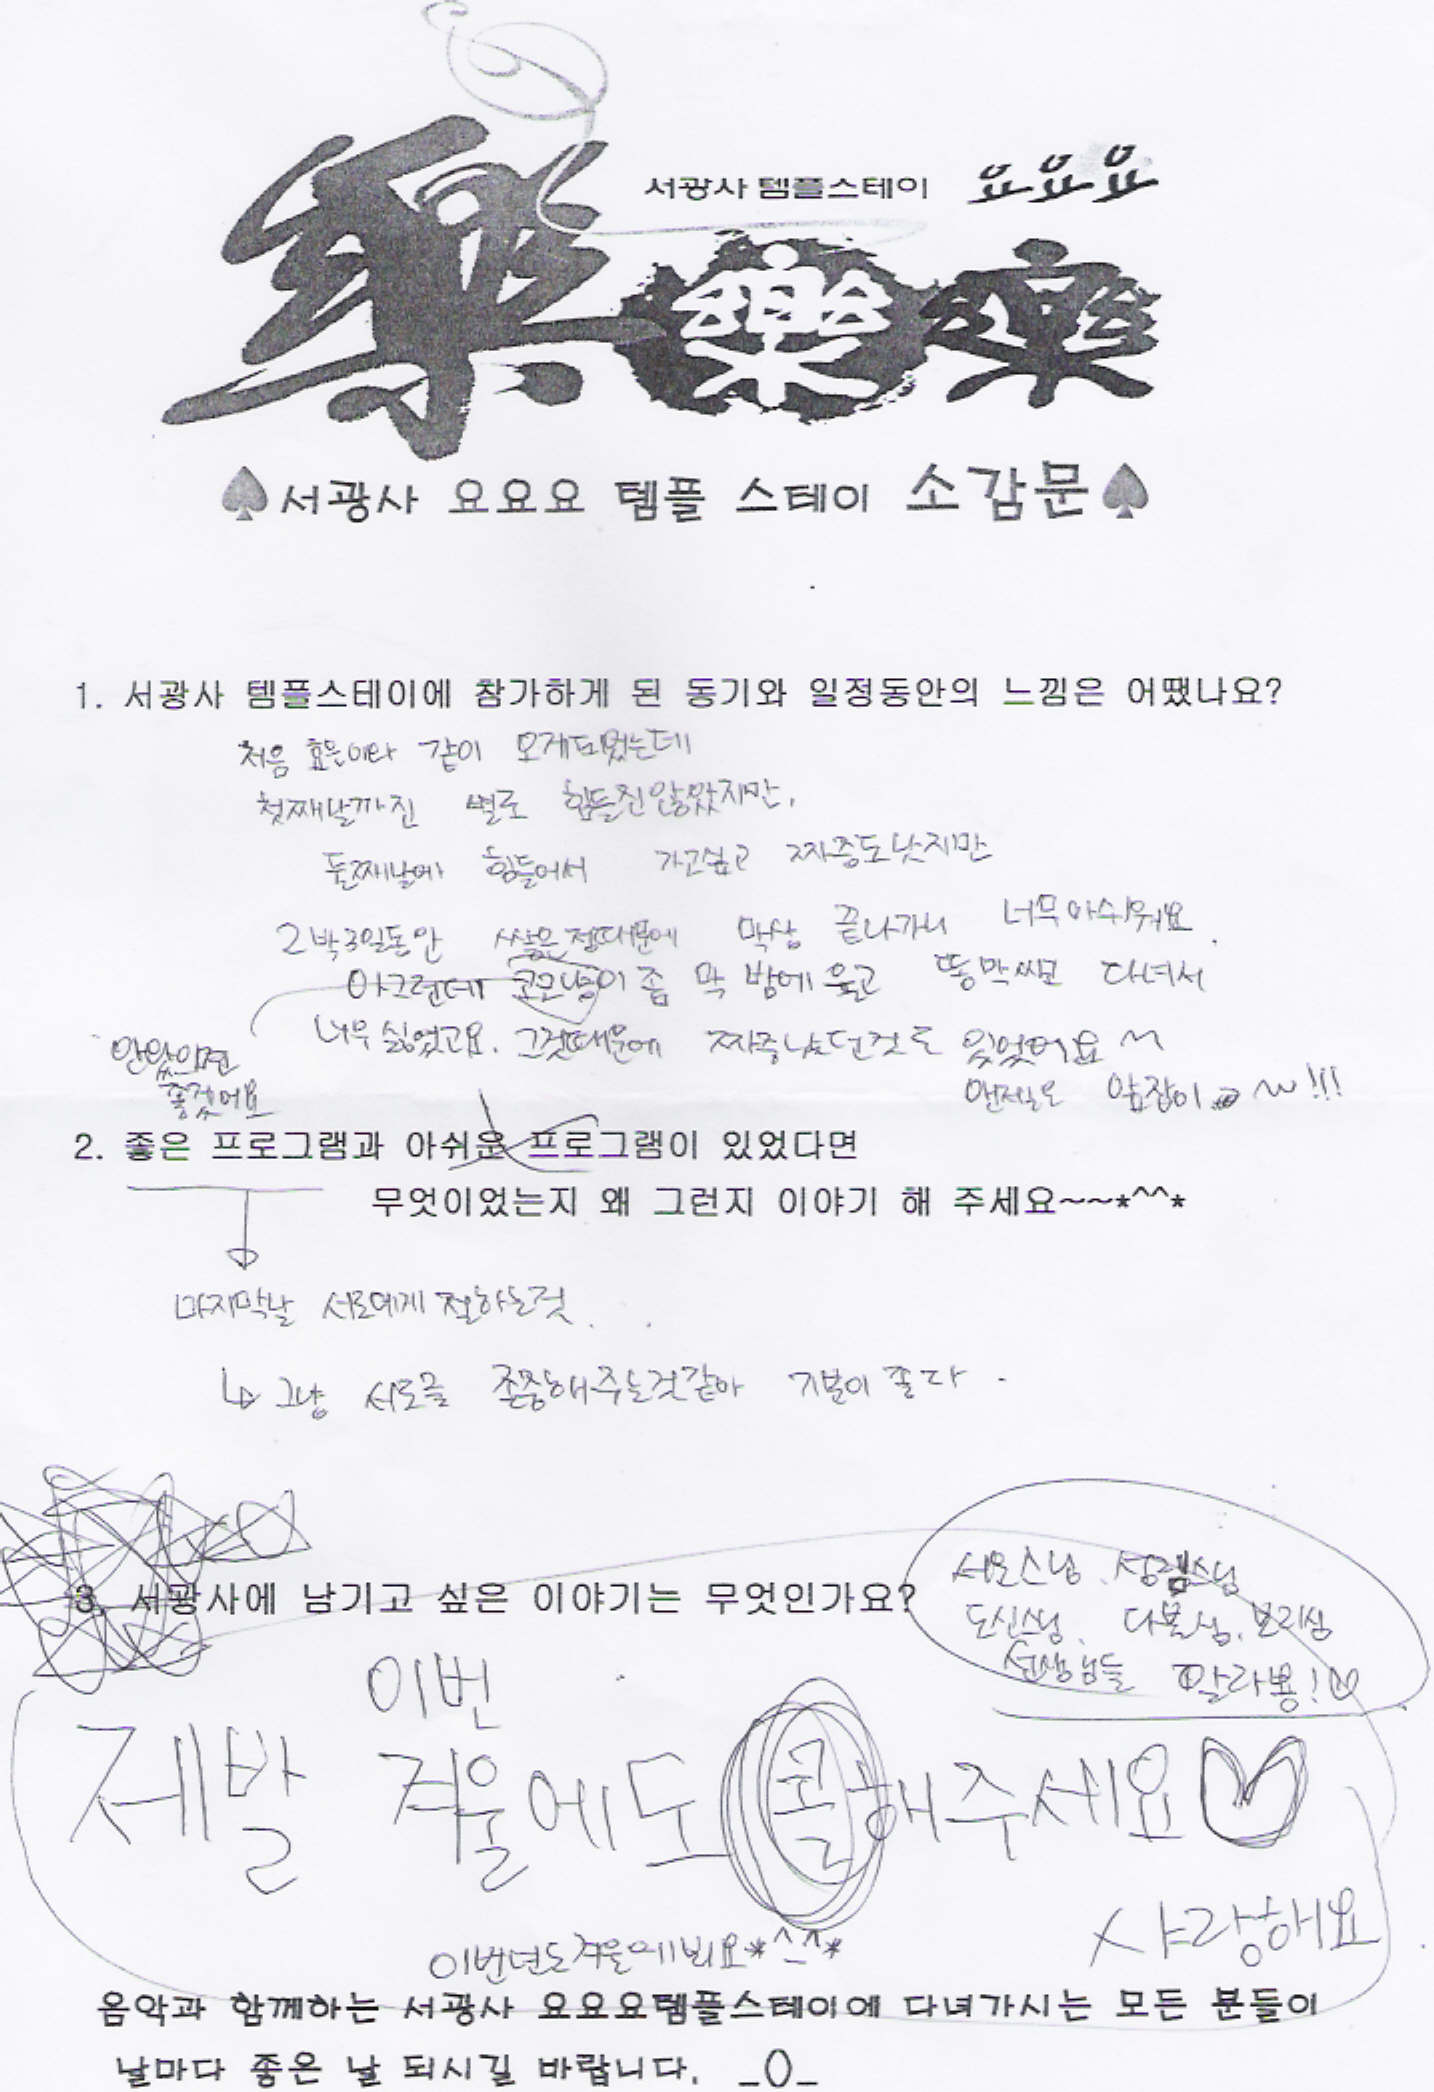 서광사 템플스테이 요요요
樂 樂 樂
♠서광사 요요요 템플 스테이 소감문♠
1. 서광사 템플스테이에 참가하게 된 동기와 일정동안의 느낌은 어땠나요?
처음 효은이랑 같이 오게되었는데
첫째날까진 별로 힘들진않았지만,
둘째날에 힘들어서 가고싶고 짜증도낫지만
2박3일동안 쌓은정때문에 막상 끝나가니 너무아쉬워요.
아그런데 이 좀 막 밤에 울고 똥막싸고 다녀서
너무 싫었고요. 그것때문에 짜증났던것도 있었어요 ~
안왔으면
좋겠어요
앞잡이 ~!!!
2. 좋은 프로그램과 아쉬운 프로그램이 있었다면
무엇이었는지 왜 그런지 이야기 해 주세요~~*^^*
마지막날 서로에게 절하는것.
↳ 그냥 서로를 존중해주는것같아 기분이 좋다.
3. 서광사에 남기고 싶은 이야기는 무엇인가요?
스님, 스님
도신스님, 선생님들 알라뵹!♡
이번
제발 겨울에도 콜해주세요♡
사랑해요.
이번년도겨울에뵈요*^^*
음악과 함께하는 서광사 요요요템플스테이에 다녀가시는 모든 분들이
날마다 좋은 날 되시길 바랍니다. _O_